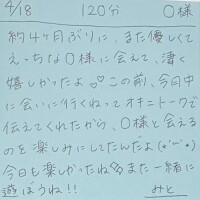 4/18 120分 O様
約4ヶ月ぶりに、また優しくて
えっちなO様に会えて、凄く
嬉しかったよ♡この前、今月中
に会いに行くねってオキニトークで
伝えてくれたから、O様と会える
のを楽しみにしてたんだよ(*'ᵕ'*)
今日も楽しかったね また一緒に
遊ぼうね!!
みと